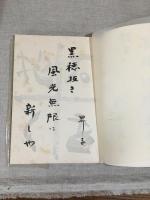 黒穂抜き
風光無限に
新しや
昇子